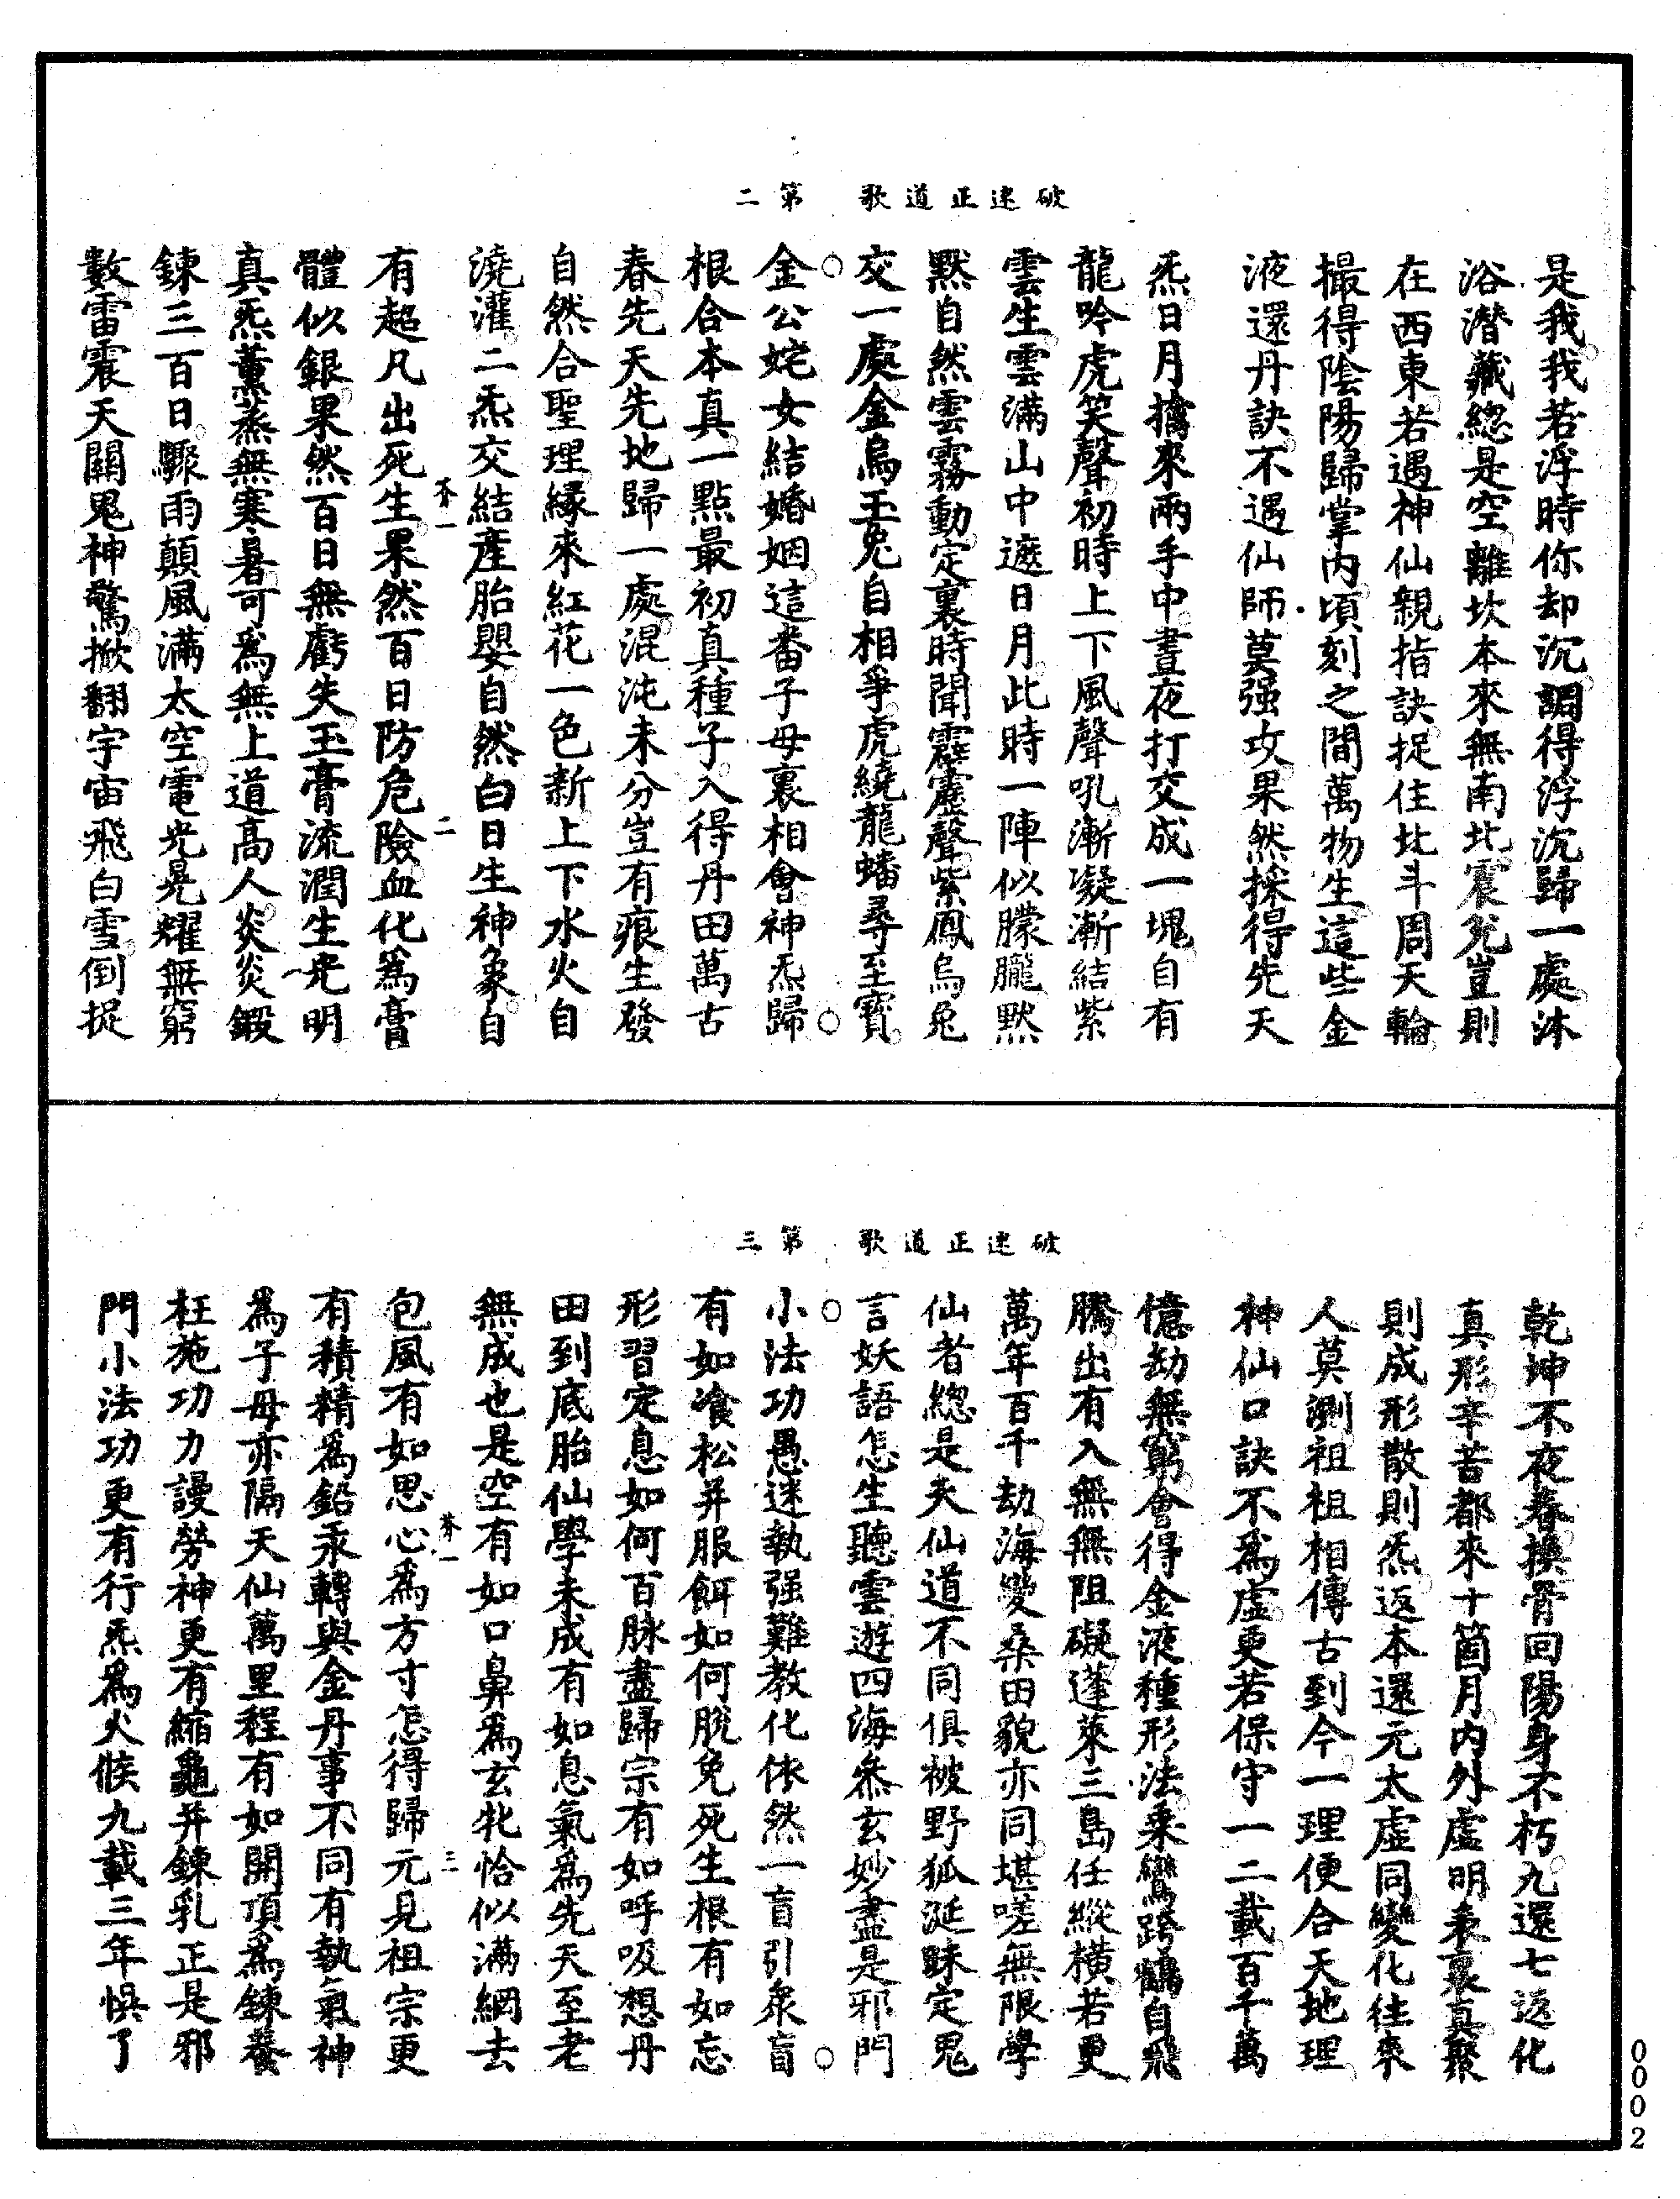 破迷正道歌　第二
是我我若浮時你却沉調得浮沉歸一處沐
浴潜藏總是空離坎本來無南北震兊豈則
在西東若遇神仙親指訣捉住北斗周天輪
撮得陰陽歸掌内頃刻之間萬物生這些金
液還丹訣不遇仙師莫强攻果然採得先天
炁日月擒來兩手中晝夜打交成一塊自有
龍吟虎笑聲初時上下風聲吼漸凝漸結紫
雲生雲滿山中遮日月此時一陣似朦朧默
默自然雲霧動定裏時聞霹靂聲紫鳳烏兔
交一處金烏玉兔自相爭虎繞龍蟠尋至寳
金公姹女結婚姻這番子母裏相會神炁歸
根合本真一點最初真種子入得丹田萬古
春先天先地歸一處混沌未分豈有痕生發
自然合聖理緣來紅花一色新上下水火自
澆灌二炁交結産胎嬰自然白日生神象自
有超凡出死生果然百日防危險血化爲膏
體似銀果然百日無虧失玉膏流潤生光明
真炁薰蒸無寒暑可爲無上道高人炎炎鍛
鍊三百日驟雨顛風滿太空電光晃耀無窮
數雷震天關鬼神驚掀翻宇宙飛白雪倒捉
薺一
二
破迷正道歌　第三
乾坤不夜春換骨回陽身不朽九還七返化
真形辛苦都來十箇月内外虛明表裏真聚
則成形散則炁返本還元太虛同變化往來
人莫測祖祖相傳古到今一理便合天地理
神仙口訣不爲虛更若保守一二載百千萬
億劫無窮會得金液種形法乗鸞跨鶴自飛
騰出有入無無阻礙蓬萊三島任縱横若更
萬年百千劫海變桑田貌亦同堪嗟無限學
仙者總是天仙道不同俱被野狐涎昧定鬼
言妖語怎生聽雲遊四海叅玄妙盡是邪門
小法功愚迷執强難教化依然一盲引衆盲
有如飡松并服餌如何脱免死生根有如忘
形習定息如何百脉盡歸宗有如呼吸想丹
田到底胎仙學未成有如息氣爲先天至老
無成也是空有如口鼻爲玄牝恰似滿網去
包風有如思心爲方寸怎得歸元見祖宗更
有積精爲鉛汞轉與金丹事不同有執氣神
爲子母亦隔天仙萬里程有如開頂爲鍊養
枉施功力謾勞神更有縮龜并鍊乳正是邪
門小法功更有行炁爲火候九載三年悞了
薺一
三
0002